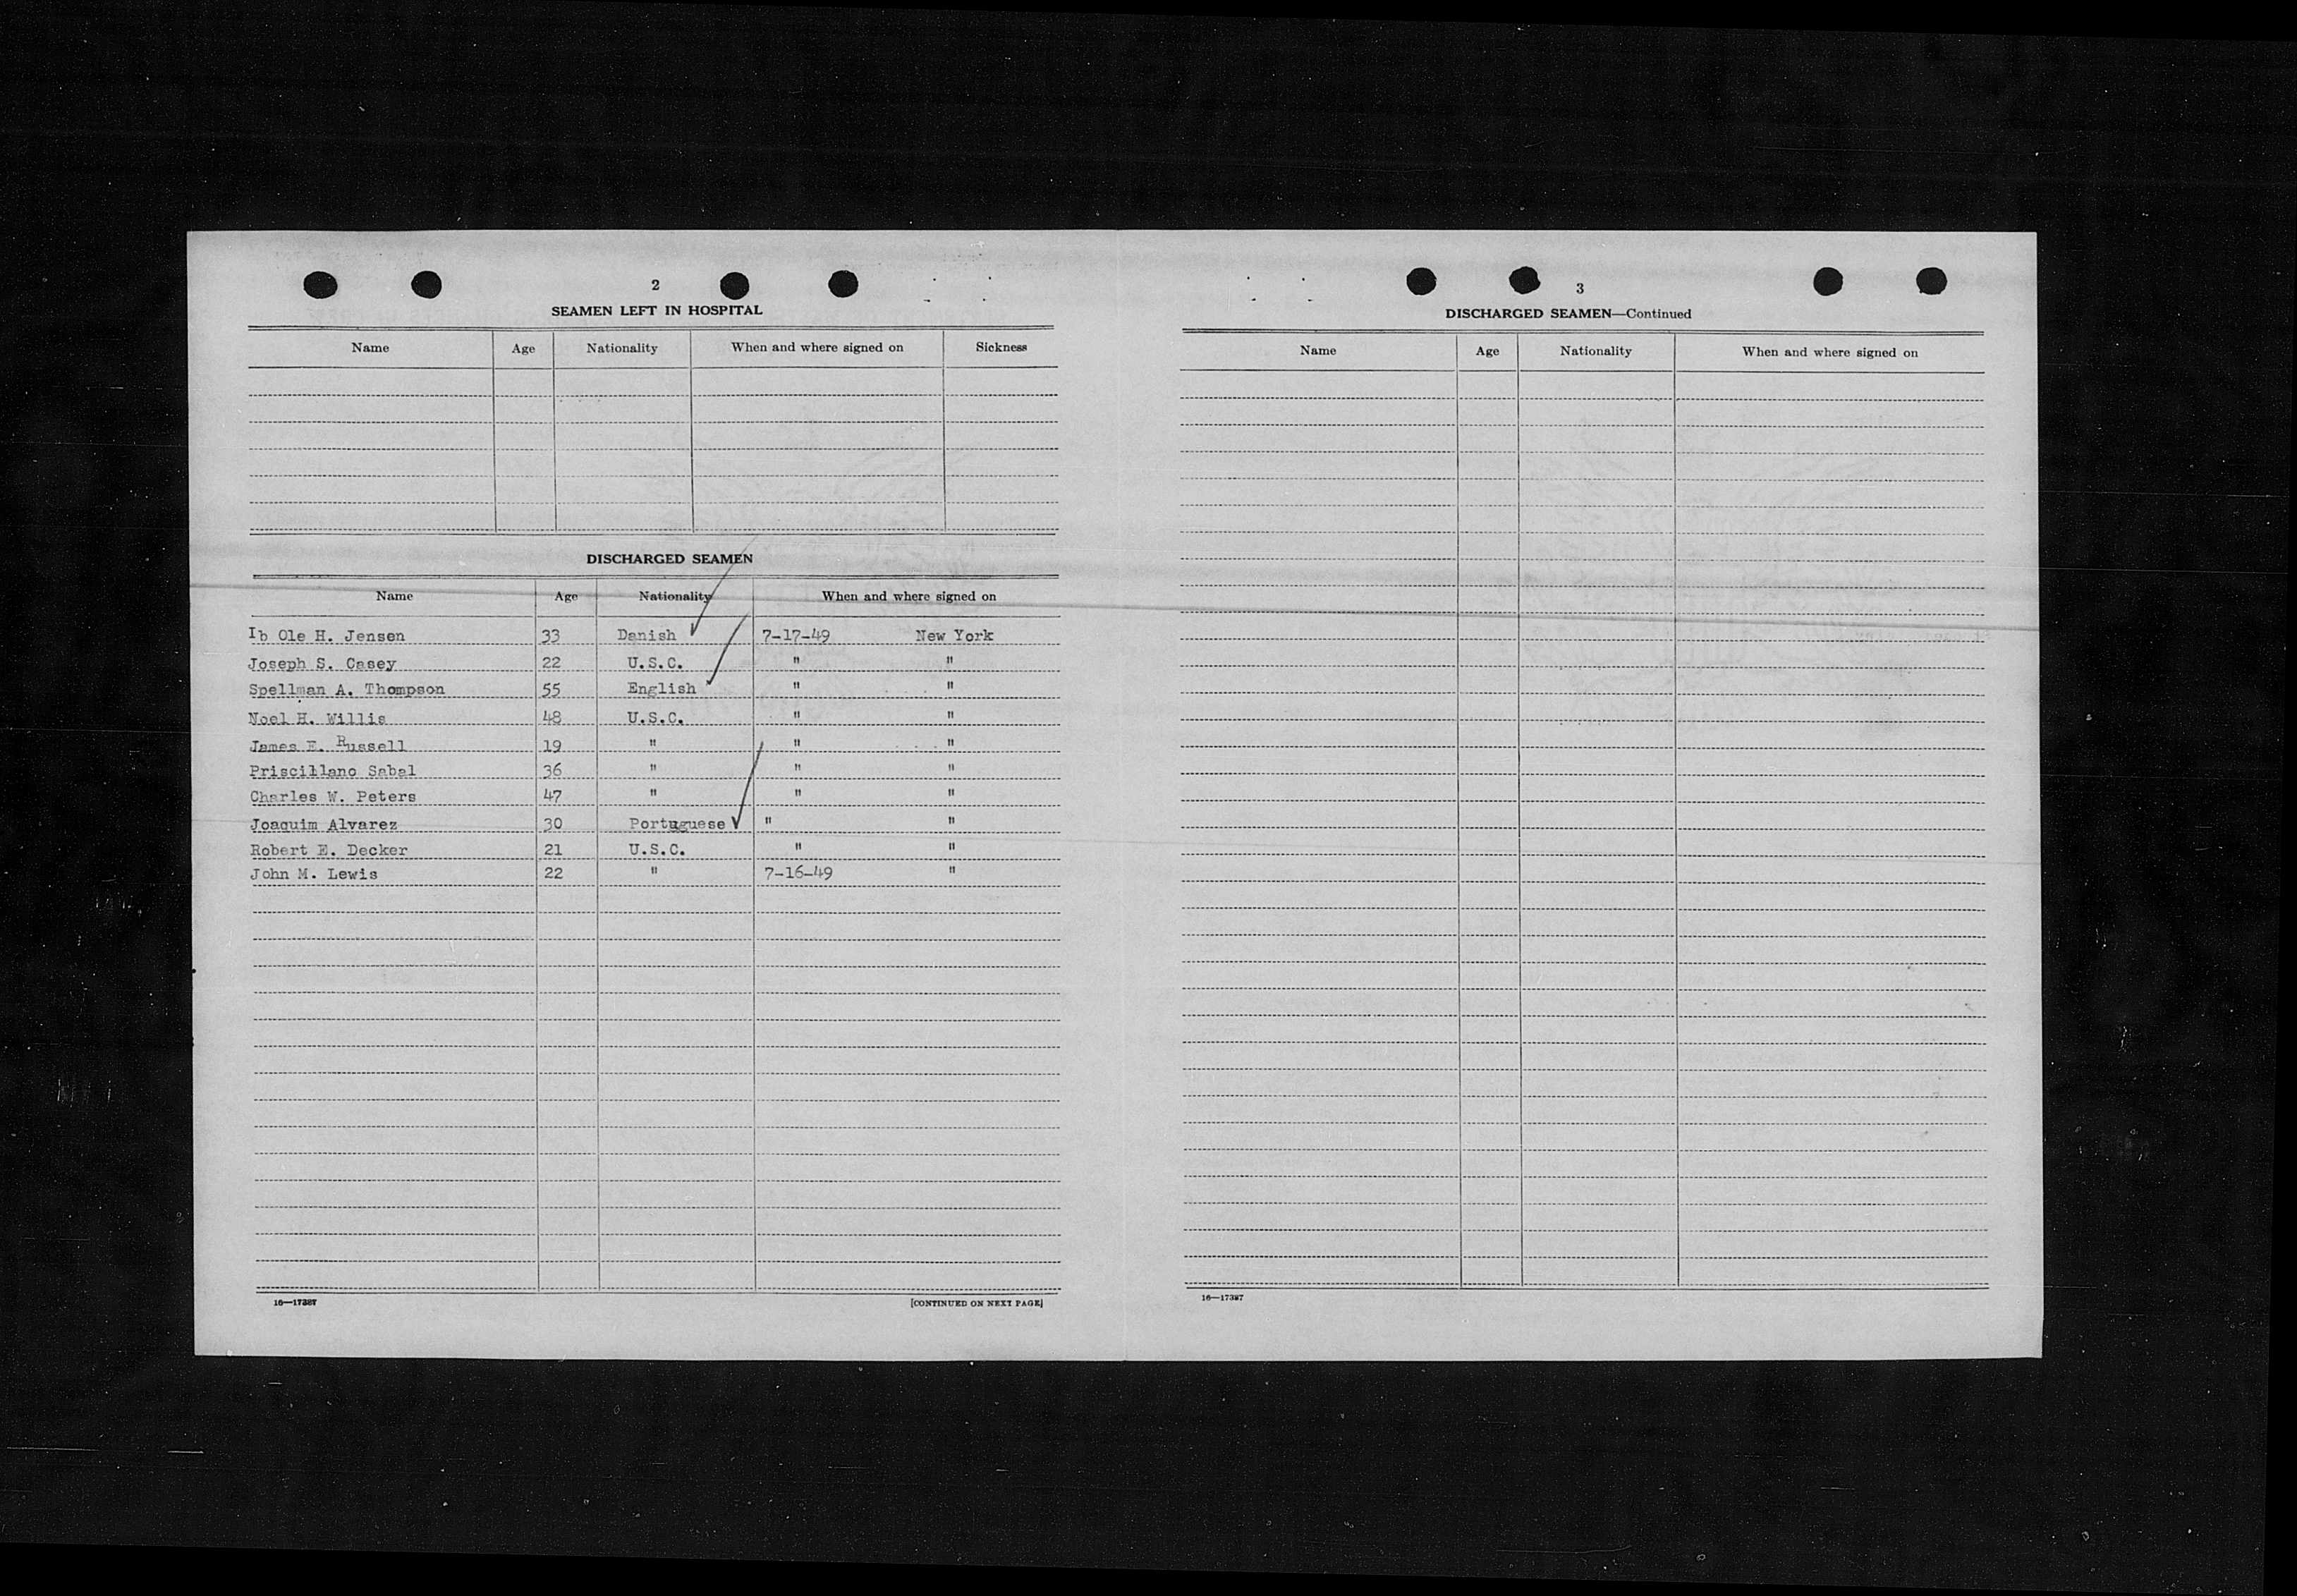 2
SEAMEN LEFT IN HOSPITAL
Name Age Nationality When and where signed on Sickness
DISCHARGED SEAMEN
Name Age Nationality When and where signed on
Ib Ole H. Jensen 33 Danish 7-17-49 New York
Joseph S. Casey 22 U.S.C. " "
Spellman A. Thompson 55 English " "
Noel H. Willis 48 U.S.C. " "
James E. Russell 19 " " "
Priscillano Sabal 36 " " "
Charles W. Peters 47 " " "
Joaquim Alvarez 30 Portuguese " "
Robert E. Decker 21 U.S.C. " "
John M. Lewis 22 " 7-16-49 "
16—17387 [CONTINUED ON NEXT PAGE]
3
DISCHARGED SEAMEN—Continued
Name Age Nationality When and where signed on
16—17387